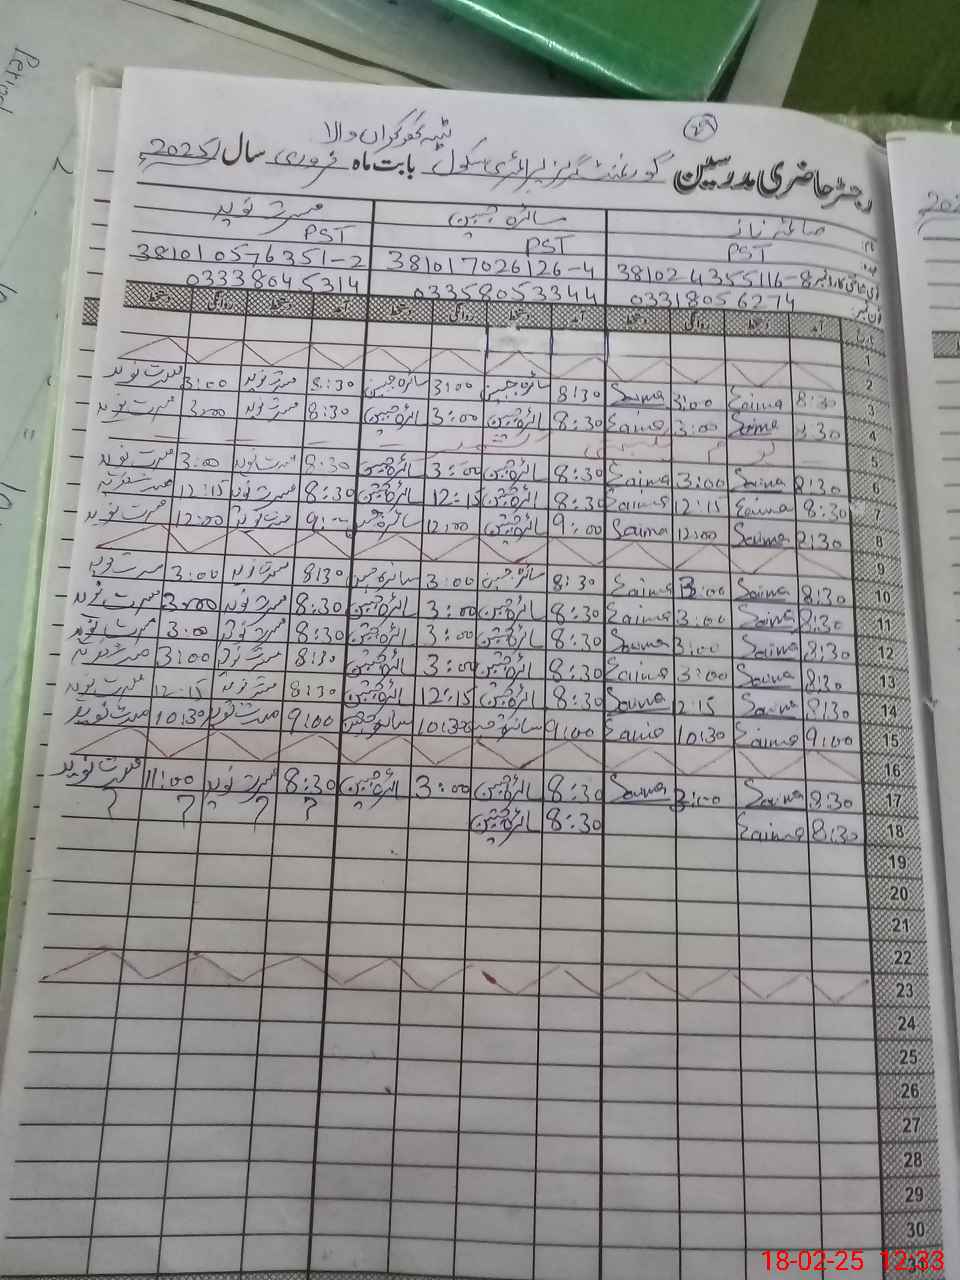 ٹبہ کھوکراں والا
رجسٹر حاضری مدرسین گورنمنٹ گرلز پرائمری سکول بابت ماہ فروری سال 2025ء
نام: صائمہ ناز سائرہ جبین مسرت نوید
عہدہ PST PST PST
شناختی کارڈ نمبر 381024355116-8 381017026126-4 381010576351-2
فون نمبر: 03318056274 03358053344 03338045314
تاریخ آمد دستخط روانگی دستخط آمد دستخط روانگی دستخط آمد دستخط روانگی دستخط
1
2
3 8:30 Saima 3:00 Saima 8:30 سائرہ جبین 3:00 سائرہ جبین 8:30 مسرت نوید 3:00 مسرت نوید
4 8:30 Saima 3:00 Saima 8:30 سائرہ جبین 3:00 سائرہ جبین 8:30 مسرت نوید 3:00 مسرت نوید
5
6 8:30 Saima 3:00 Saima 8:30 سائرہ جبین 3:00 سائرہ جبین 8:30 مسرت نوید 3:00 مسرت نوید
7 8:30 Saima 12:15 Saima 8:30 سائرہ جبین 12:15 سائرہ جبین 8:30 مسرت نوید 12:15 مسرت نوید
8 8:30 Saima 12:00 Saima 9:00 سائرہ جبین 12:00 سائرہ جبین 9:00 مسرت نوید 12:00 مسرت نوید
9
10 8:30 Saima 3:00 Saima 8:30 سائرہ جبین 3:00 سائرہ جبین 8:30 مسرت نوید 3:00 مسرت نوید
11 8:30 Saima 3:00 Saima 8:30 سائرہ جبین 3:00 سائرہ جبین 8:30 مسرت نوید 3:00 مسرت نوید
12 8:30 Saima 3:00 Saima 8:30 سائرہ جبین 3:00 سائرہ جبین 8:30 مسرت نوید 3:00 مسرت نوید
13 8:30 Saima 3:00 Saima 8:30 سائرہ جبین 3:00 سائرہ جبین 8:30 مسرت نوید 3:00 مسرت نوید
14 8:30 Saima 12:15 Saima 8:30 سائرہ جبین 12:15 سائرہ جبین 8:30 مسرت نوید 12:15 مسرت نوید
15 9:00 Saima 10:30 Saima 9:00 سائرہ جبین 10:30 سائرہ جبین 9:00 مسرت نوید 10:30 مسرت نوید
16
17 8:30 Saima 3:00 Saima 8:30 سائرہ جبین 3:00 سائرہ جبین 8:30 مسرت نوید 11:00 مسرت نوید
18 8:30 Saima 8:30 سائرہ جبین ? ? ? ?
19
20
21
22
23
24
25
26
27
28
29
30
31
18-02-25 12:33